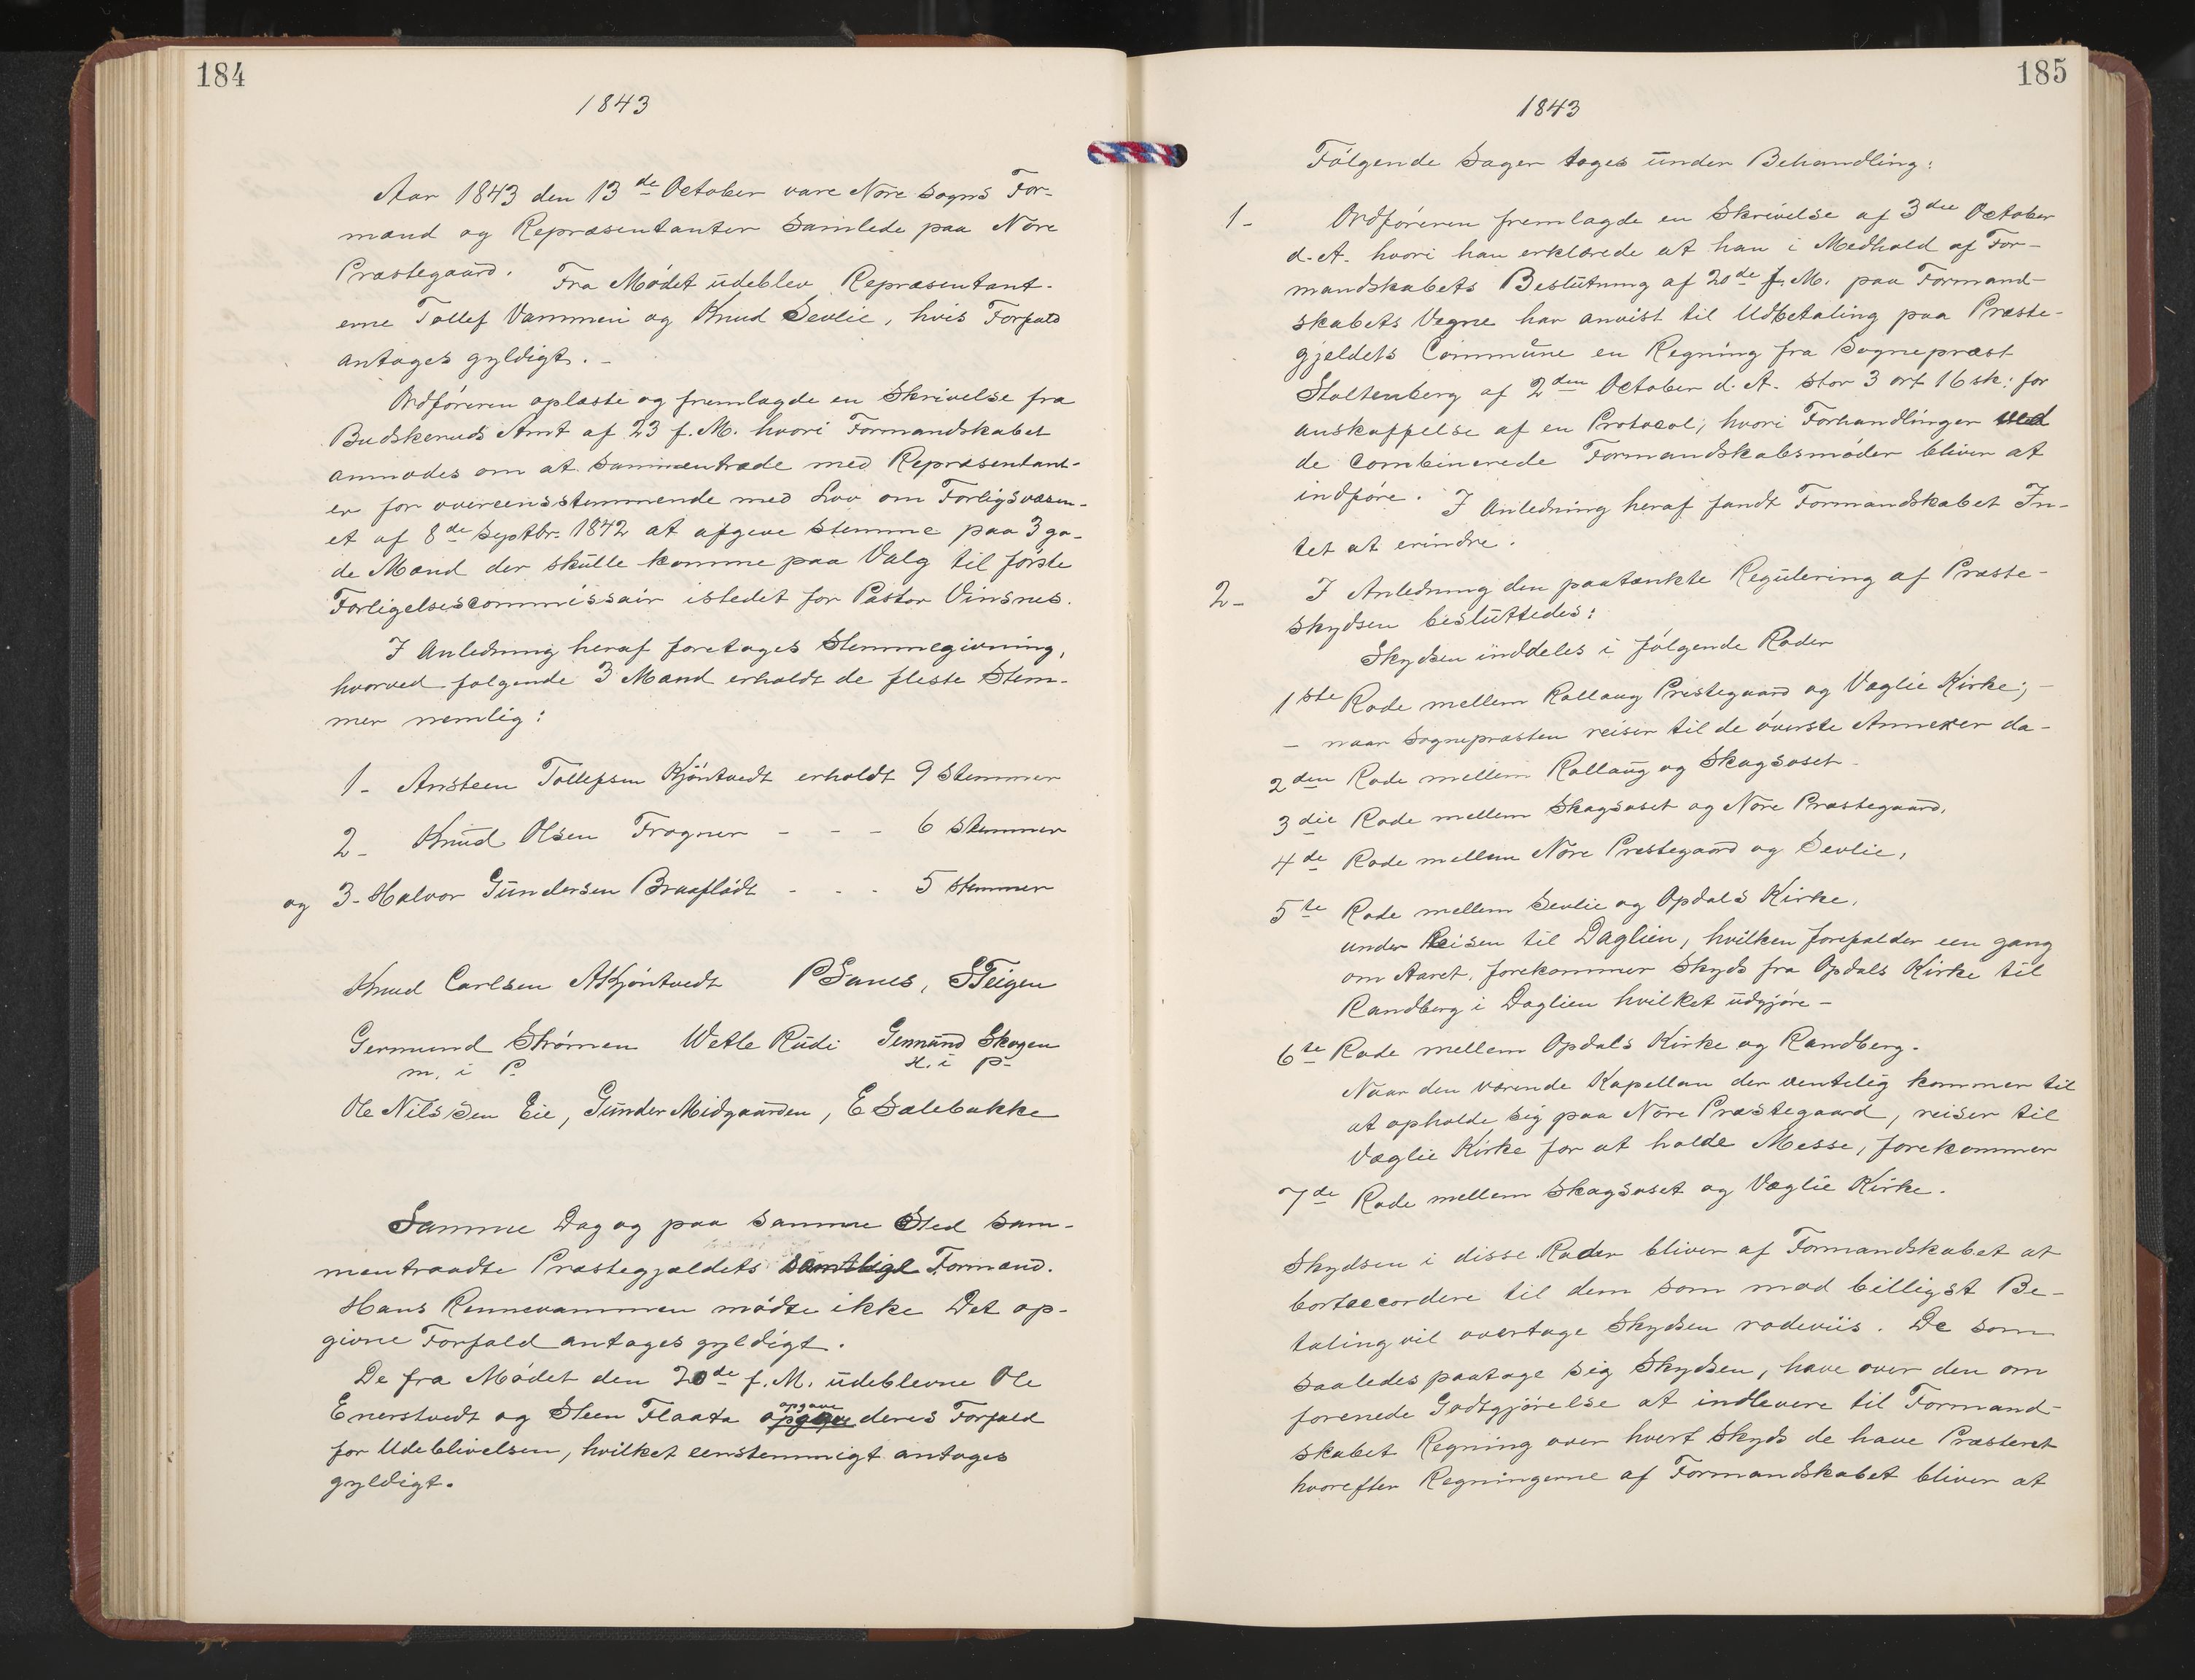 184
1843
Aar 1843 den 13de October vare Nore Sogns For-
mænd og Repræsentanter Samlede paa Nore
Præstegaard. Fra Mödet udeblev Repræsentant-
erne Tollef Vammen og Knud Sevlie, hvis Forfald
antages gyldigt. -
Ordföreren oplæste og fremlagde en Skrivelse fra
Budskeruds Amt af 23 f. M. hvori Formandskabet
anmodes om at sammentræde med Repræsentant-
er for overeensstemmende med Lov om Forligsvæsen-
et af 8de Septbr. 1842 at afgive stemme paa 3 go-
de Mænd der skulle komme paa Valg til förste
Forligelsescommissair istedet for Pastor Vinsnes.
I Anledning heraf foretages Stemmegivning,
hvorved folgende 3 Mænd erholdt de fleste Stem-
mer nemlig:
1- Ansteen Tollefsen Kjöntvedt erholdt 9 Stemmer
2- Knud Olsen Fragner - - - 6 Stemmer
og 3- Halvor Gundersen Braaflådt - - - 5 stemmer
Knud Carlsen AKjöntvedt PSanes, STeigen
Germund Strömen Wetle Rudi Gunnund Skogen
m. i P. H. i P-
Ole Nilssen Eie, Gunder Midgaarden, E Sælebakke
Samme Dag og paa samme Sted sam-
mentraadte Præstegjældets samtlige Formænd.
Hans Rennevammen mödte ikke Det op-
givne Forfald antages gyldigt.
De fra Mödet den 20de f. M. udeblevne Ole
opgave
Enerstvedt og Steen Flaata opgave deres Forfald
for Udeblivelsen, hvilket eenstemmigt antages
gyldigt.
185
1843
Fölgende Sager toges under Behandling:
1- Ordföreren fremlagde en Skrivelse af 3die October
d. A. hvori han erklærede at han i Medhold af For-
mandskabets Beslutning af 20de f. M. paa Formand-
skabets Vegne har anvist til Udbetaling paa Præste-
gjeldets Commune en Regning fra Sognepræst
Stoltenberg af 2den October d. A. stor 3 ort 16 sk: for
anskaffelse af en Protocol, hvori Forhandlinger ved
de combinerede Formandskabsmöder bliver at
indföre. I Anledning heraf fandt Formandskabet In-
tet at erindre.
2- I Anledning den paatænkte Regulering af Præste-
skydsen besluttedes:
Skydsen inddeles i fölgende Roder
1ste Rode mellem Rollaug Prestegaard og Væglie Kirke; -
- naar Sognepræsten reiser til de överste Annexer da-
2den Rode mellem Rollaug og Skagsoset -
3die Rode mellem Skagsoset og Nore Præstegaard,
4de Rode mellem Nore Prestegaard og Sevlie,
5te Rode mellem Sevlie og Opdals Kirke,
under Reisen til Daglien, hvilken forefalder een gang
om Aaret, forekommer Skyds fra Opdals Kirke til
Randberg i Daglien hvilket udgjöre -
6te Rode mellem Opdals Kirke og Randberg.
Naar den værende Kapellan der ventelig kommer til
at opholde sig paa Nore Præstegaard, reiser til
Væglie Kirke for at holde Messe, forekommer
7de Rode mellem Skagsoset og Væglie Kirke.
Skydsen i disse Roder bliver af Formandskabet at
bortaccordere til dem som mod billigst Be-
taling vil overtage Skydsen rodeviis. De som
saaledes paatage sig Skydsen, have over den om
forenede Godtgjörelse at indlevere til Formand-
skabet Regning over hvert Skyds de have Præsteret
hvorefter Regningerne af Formandskabet bliver at